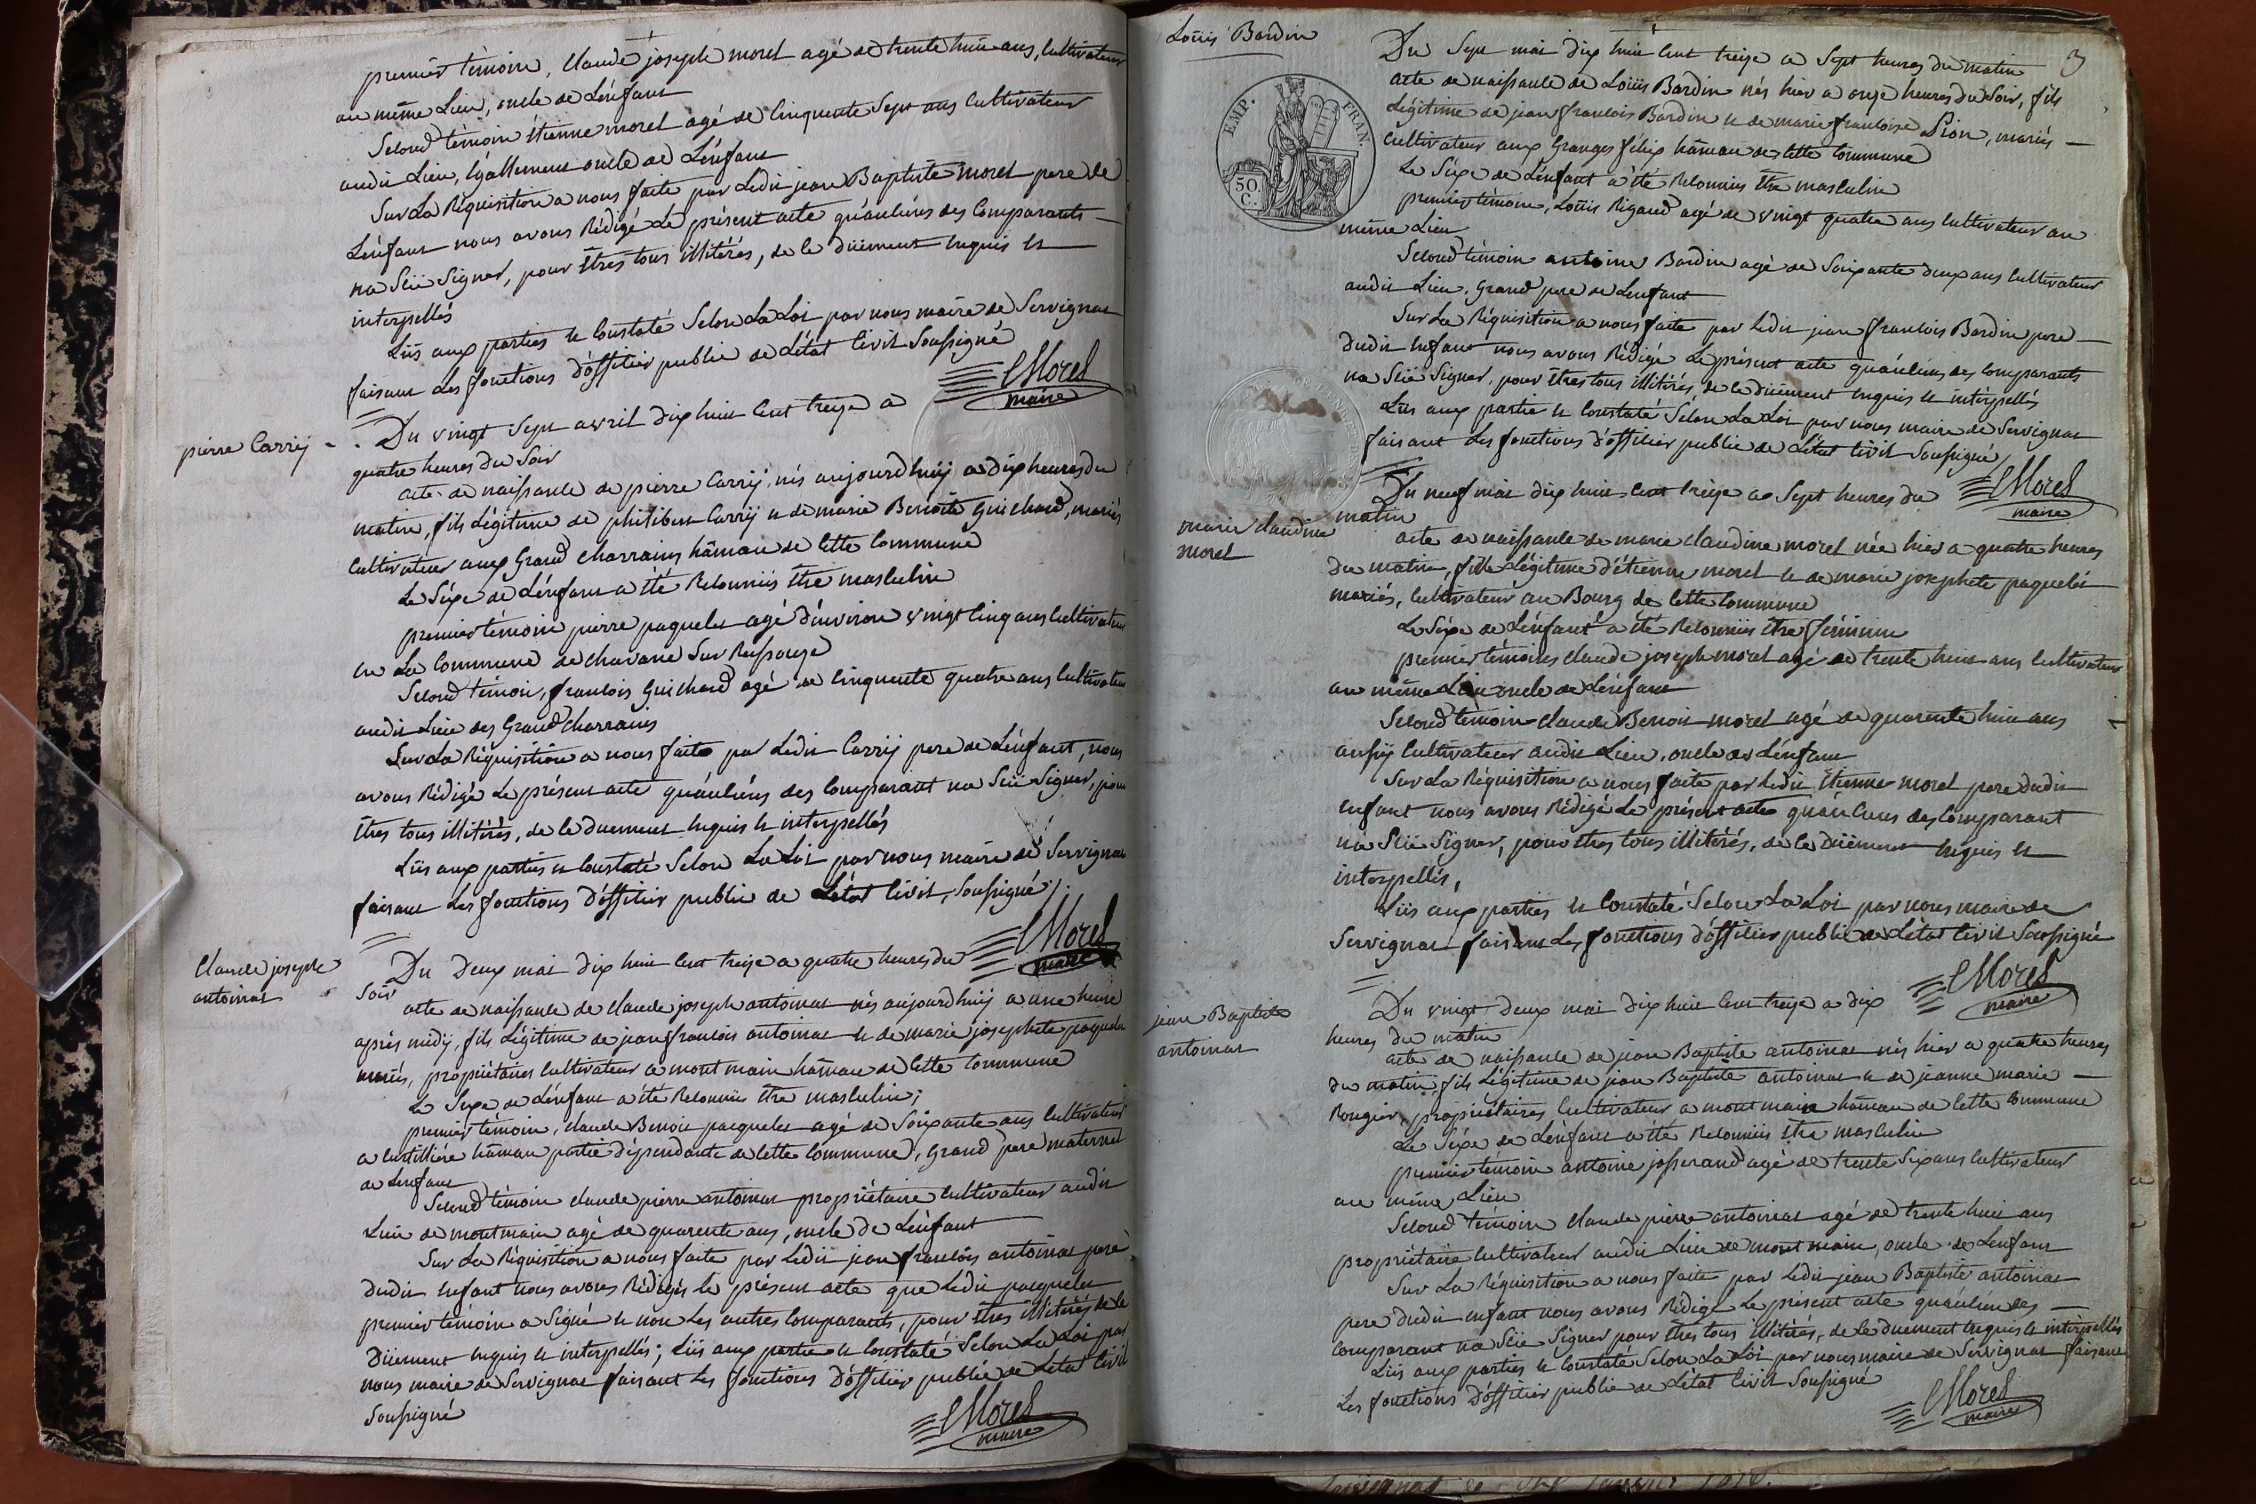 premier témoin, claude joseph morel agé de trente huit ans, cultivateur
au même Lieu, oncle de Lénfant
Second témoin étienne morel agé de Cinquente Sept ans Cultivateur
audit Lieu, égallement oncle de Lénfant
Sur La Réquisition a nous faite par Ledit jean Baptiste morel pere de
Lénfant nous avons Rédigé Le présent acte qu'auciens des Comparants
na Sçü Signer, pour êtres tous illitérés, de ce düement enquis et
interpellés
Lüs aux parties et Constaté Selon La Loi par nous maire de Servignat
faisant Les fonctions d'officier public de Létat Civil Soussigné
CMorel
maire
pierre Carrÿ
Du vingt Sept avril dix huit Cent treize a
quatre heures du Soir
acte de naissance de pierre Carrÿ, nés aujourdhuÿ a dix heures du
matin, fils Légitime de philibert Carrÿ et de marie Benoite Guichard, mariés
Cultivateur aux Grand Charrains hâmau de Cette Commune
Le Séxe de Lénfant a été Reconnüs être masculin
premier témoin pierre paquelet agé d'environ vingt Cinq ans Cultivateur
en La Commune de chavane Sur Ressouze
Second témoin, francois Guichard agé de Cinquente quatre ans Cultivateur
audit Lieu des Grand Charrains
Sur La Réquisition a nous faite par Ledit Carrÿ pere de Lénfant, nous
avons Rédigé Le présent acte qu'auciéns des Comparant na Sçü Signer, pour
êtres tous illitérés, de ce duement enquis et interpellés
Lüs aux parties et Constaté Selon La Loi par nous maire de Servignat
faisant Les fonctions d'officier public de Létat Civil, Soussigné /.
CMorel
maire
Claude joseph
antoinat
Du Deux mai dix huit Cent treize a quatre heures du
Soir
acte de naissance de claude joseph antoinat nés aujourdhuÿ a une heure
après midÿ, fils Légitime de jean francois antoinat et de marie josephete paquelet
mariés, propriétaires Cultivateur a mont main hâmau de Cette Commune
Le Sexe de Lénfant a été Reconnüs être masculin;
premier témoin, claude Benoit pacquelet agé de Soixante ans Cultivateur
a Curtilliére hâmau partie dépendante de Cette Commune, Grand pere maternel
de Lenfant
Second témoin claude pierre antoinat propriétaire Cultivateur audit
Lieu de montmain agé de quarente ans, oncle de Lénfant
Sur La Réquisition a nous faite par Ledit jean francois antoinat pere
dudit enfant nous avons Rédigés le présent acte que Ledit pacquelet
premier témoin a Signé et non Les autres Comparants, pour êtres illitérés de Ce
Düement enquis et interpellés; Lüs aux partie et Constaté Selon La Loi par
nous maire de Servignat faisant Les fonctions D'officier public de Létat Civil
Soussigné
CMorel
maire
Loüis Bardin
3
EMP. FRAN.
50
C.
Du Sept mai dix huit Cent treize a Sept heures du matin
acte de naissance de Loüis Bardin nés hier a onze heures du Soir, fils
Légitime de jean francois Bardin et de marie francoise Pion, mariés
Cultivateur aux Granges félix hâmau de Cette Commune
Le Séxe de Lénfant a été Reconnüs être masculin
premier témoin, Loüis Rigaud agé de vingt quatre ans Cultivateur au
même Lieu
Second témoin antoine Bardin agé de Soixante deux ans Cultivateur
audit Lieu, Grand pere de Lenfant
Sur La Réquisition a nous faite par Ledit jean francois Bardin pere
dudit enfant nous avons Rédigé Le présent acte quauciéns des Comparants
na Sçü Signer, pour êtres tous illitérés, de ce düement enquis et intérpellés
Lüs aux partie et Constaté Selon La Loi par nous maire de Servignat
faisant Les fonctions d'officier public de Létat Civil Soussigné
CMorel
maire
marie claudine
morel
Du neuf mai dix huit Cent treize a Sept heures du
matin
acte de naissance de marie claudine morel née hier a quatre heures
du matin, fille Légitime d'étienne morel et de marie josephete paquelet
mariés, Cultivateur au Bourg de Cette Commune
Le Séxe de Lénfant a été Reconnüs être féminin
premier témoins claude joseph morel agé de trente huit ans Cultivateur
au même Lieu oncle de Lénfant
Second témoin claude Benoit morel agé de quarente huit ans
aussÿ Cultivateur audit Lieu, oncle de Lénfant
Sur La Réquisition a nous faite par Ledit étienne morel pere dudit
enfant nous avons Rédigé Le présent acte quauciens des Comparant
na Sçü Signer, pour êtres tous illitérés, de Ce Düement enquis et
interpellés,
Lüs aux parties et Constaté Selon La Loi par nous maire de
Servignat faisant Les fonctions d'officier public de Létat Civil Soussigné
CMorel
maire
jean Baptiste
antoinat
Du vingt deux mai dix huit Cent treize a dix
heures du matin
acte de naissance de jean Baptiste antoinat nés hier a quatre heures
du matin fils Légitime de jean Baptiste antoinat et de jeanne marie
Rongier, propriétaires Cultivateur a mont main hâmau de Cette Commune
Le Séxe de Lénfant a été Reconnüs être masculin
premier témoin antoine josserand agé de trente Six ans Cultivateur
au même Lieu
Second témoin claude pierre antoinat agé de trente huit ans
propriétaire Cultivateur audit Lieu de mont main, oncle de Lenfant
Sur La Réquisition a nous faite par Ledit jean Baptiste antoinat
pere dudit enfant nous avons Rédigé Le présent acte quauciéns des
Comparant na Sçü Signer pour êtres tous illitérés, de Ce duement enquis et interpellés
Lüs aux parties et Constaté Selon La Loi par nous maire de Servignat faisant
Les fonctions D'officier public de Létat Civil Soussigné
CMorel
maire